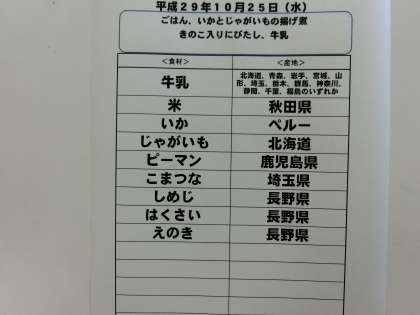 平成29年10月25日（水）
ごはん、いかとじゃがいもの揚げ煮
きのこ入りにびたし、牛乳
＜食材＞ ＜産地＞
牛乳 北海道、青森、岩手、宮城、山
形、埼玉、栃木、群馬、神奈川、
静岡、千葉、福島のいずれか
米 秋田県
いか ペルー
じゃがいも 北海道
ピーマン 鹿児島県
こまつな 埼玉県
しめじ 長野県
はくさい 長野県
えのき 長野県